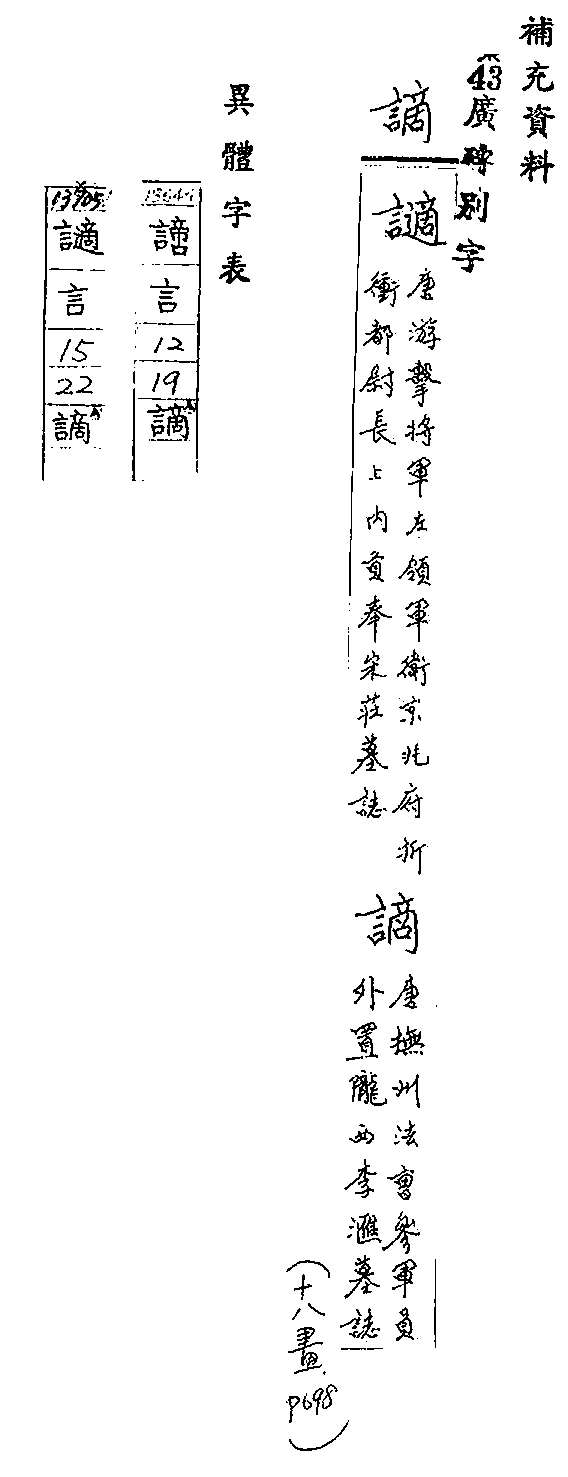 補充資料
43廣碑別字
謫
讁
唐游擊將軍左領軍衛京兆府折
衝都尉長上內貟奉宋莊墓誌
謫
唐撫州法曹參軍員
外置隴西李滙墓誌
(十八畫 P698)
異體字表
言
12
19
謫
讁
言
15
22
謫